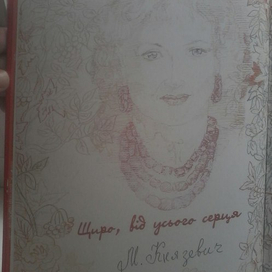 Щиро, від усього серця
М. Князевич